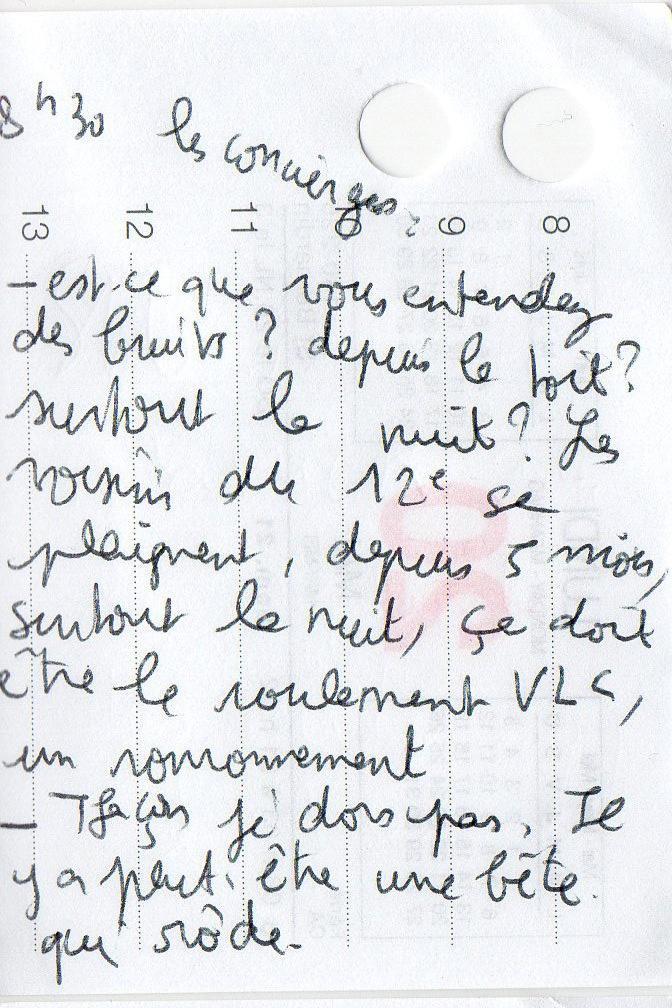 8h30 les concierges
13 12 11 10 9 8
- est-ce que vous entendez
des bruits ? depuis le toit ?
surtout la nuit ? Les
voisins du 12e se
plaignent, depuis 5 mois,
surtout la nuit, ça doit
être le roulement VLC,
un ronronnement
- Tfaçon je dors pas, Il
y a peut-être une bête
qui rôde.